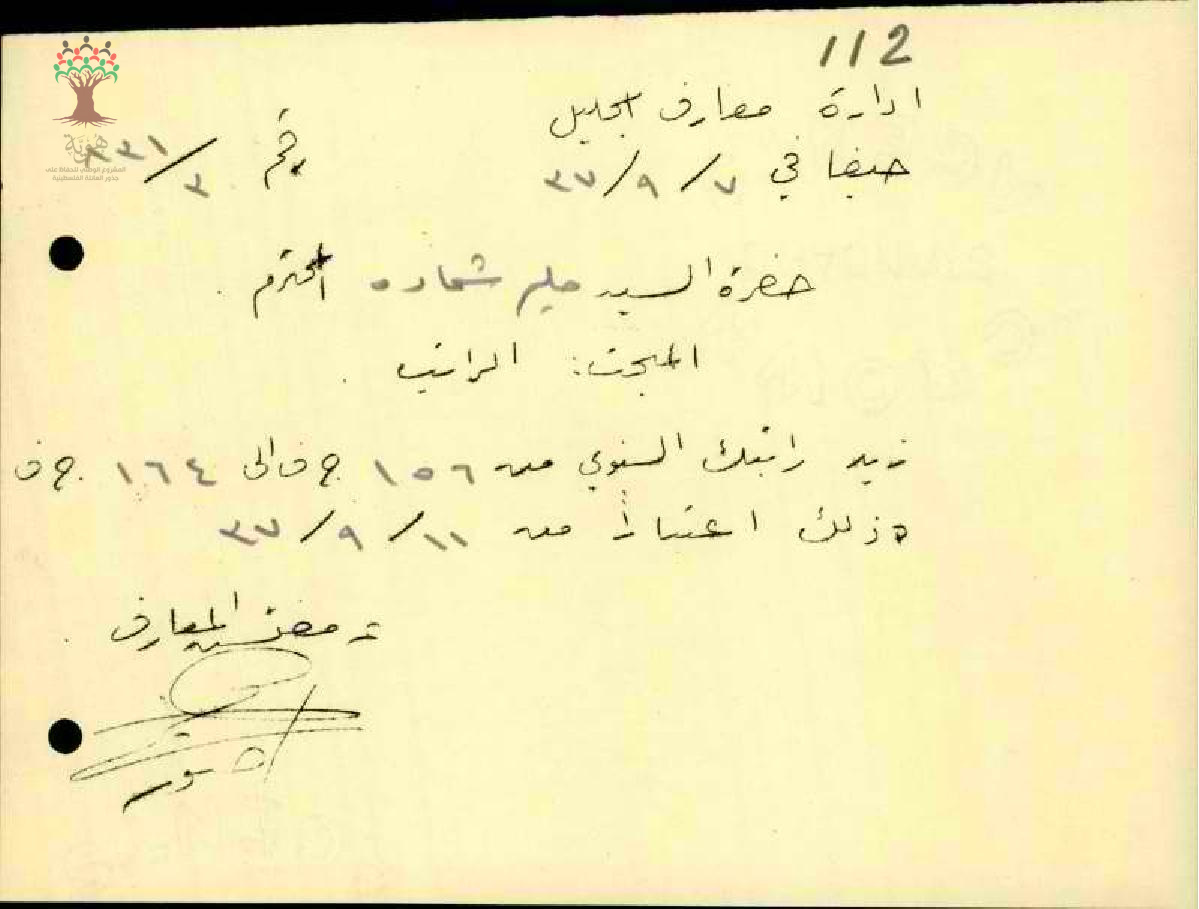 112
ادارة معارف الجليل
حيفا في ٧/٩/٣٧ رقم ٣/٨٣١
حضرة السيد حليم شحاده المحترم.
المبحث: الراتب.
زيد راتبك السنوي من ١٥٦ ج ف الى ١٦٤ ج ف
وذلك اعتباراً من ١١/٩/٣٧
مفتش المعارف.
هوية
المشروع الوطني للحفاظ على
جذور العائلة الفلسطينية